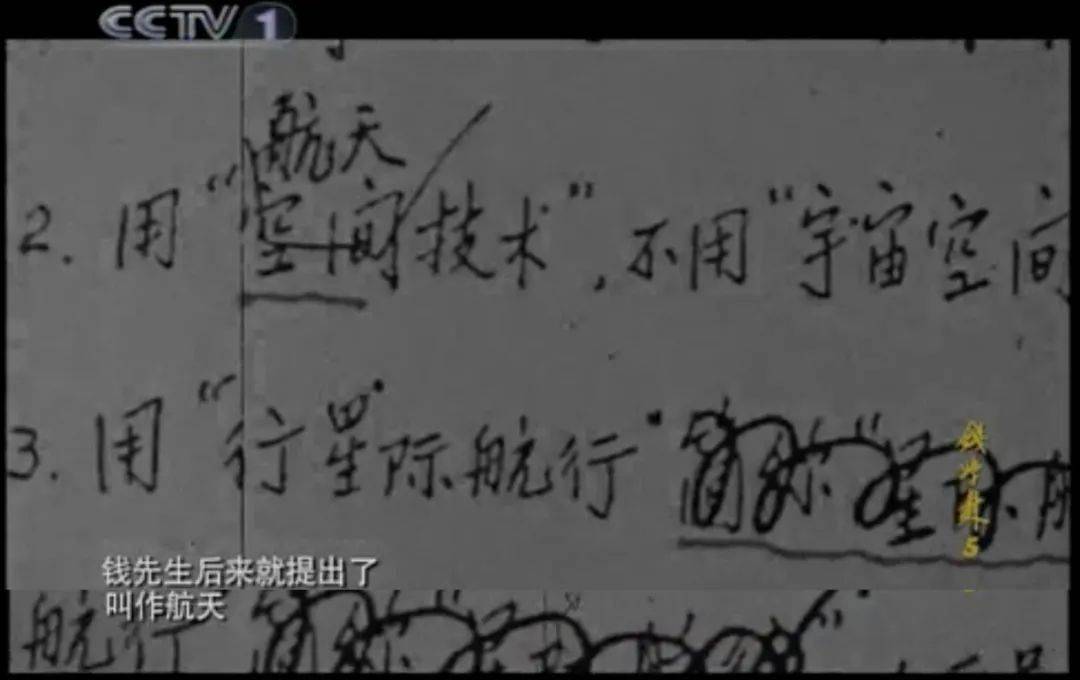 CCTV 1
航天
2. 用“空间技术”,不用“宇宙空间
3. 用“行星际航行”简称“星际航
钱学森 5
钱先生后来就提出了
叫作航天
航行 简称